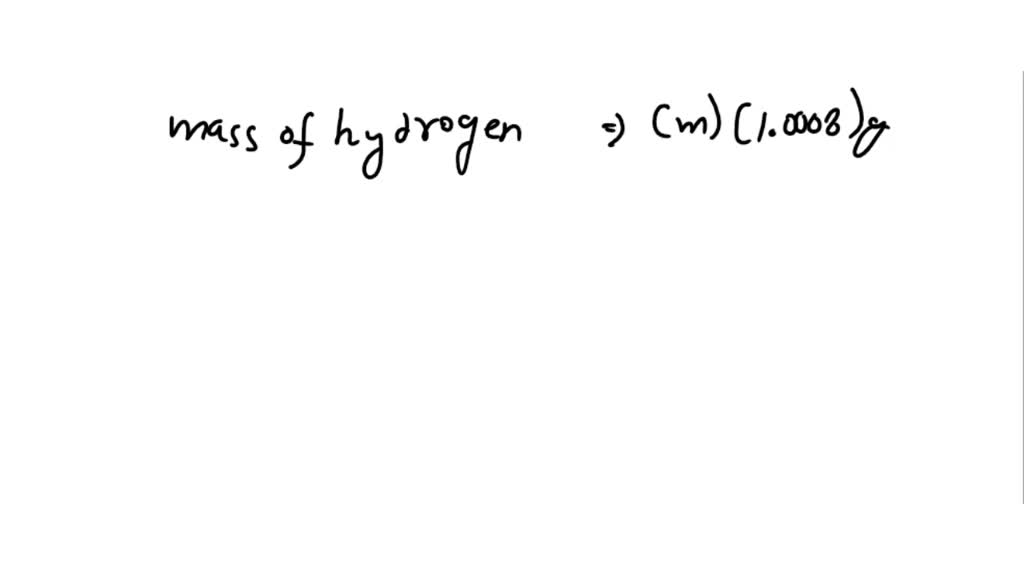 mass of hydrogen ⇒ (m) (1.0008)g